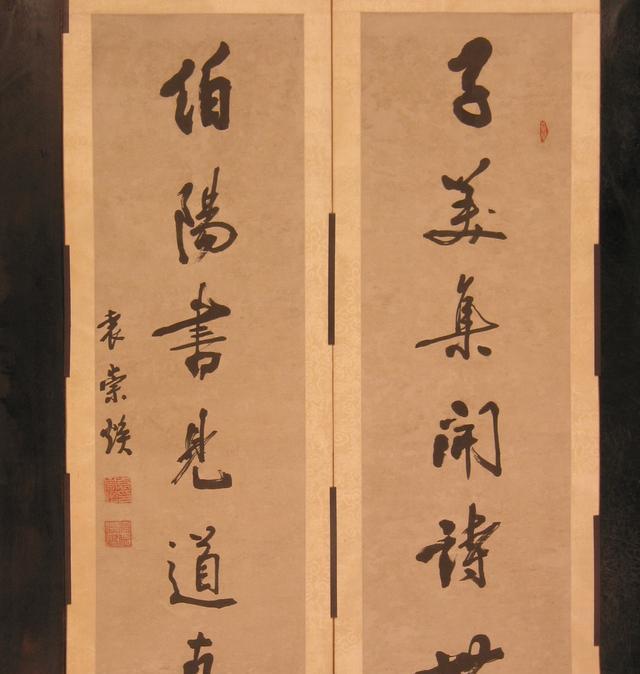 子美集開詩
伯陽書見道
袁崇煥